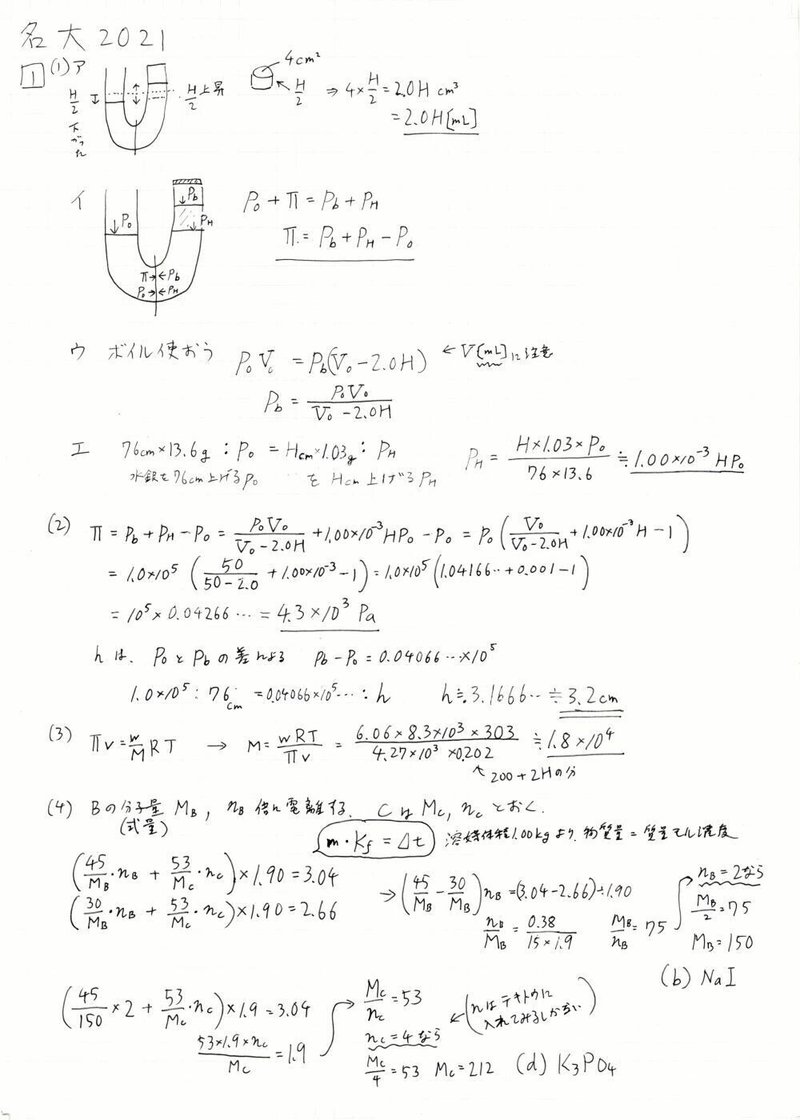 名大2021
1 (1)ア H/2 下がった H/2上昇 4cm² H/2 ⇒ 4×H/2=2.0H cm³
=2.0H[mL]
イ P₀ Pb PH P₀+Π=Pb+PH
Π=Pb+PH−P₀
Π→←Pb
P₀→←PH
ウ ボイル使おう P₀V₀=Pb(V₀−2.0H) ←V[mL]に注意
Pb=P₀V₀/(V₀−2.0H)
エ 76cm×13.6g:P₀=Hcm×1.03g:PH PH=(H×1.03×P₀)/(76×13.6)≒1.00×10⁻³HP₀
水銀を76cm上げるP₀ を Hcm上げるPH
(2) Π=Pb+PH−P₀=P₀V₀/(V₀−2.0H)+1.00×10⁻³HP₀−P₀=P₀(V₀/(V₀−2.0H)+1.00×10⁻³H−1)
=1.0×10⁵(50/(50−2.0)+1.00×10⁻³−1)=1.0×10⁵(1.04166‥+0.001−1)
=10⁵×0.04266…=4.3×10³Pa
hは、P₀とPbの差による Pb−P₀=0.04066…×10⁵
1.0×10⁵:76cm=0.04066×10⁵…:h h≒3.1666‥≒3.2cm
(3) Πv=w/M RT → M=wRT/Πv=(6.06×8.3×10³×303)/(4.27×10³×0.202)≒1.8×10⁴
↑200+2Hの分
(4) Bの分子量MB, nB倍に電離する. CはMc,ncとおく.
(式量)
m・Kf=Δt 溶媒体積1.00kgより、物質量=質量モル濃度
(45/MB・nB+53/Mc・nc)×1.90=3.04
(30/MB・nB+53/Mc・nc)×1.90=2.66
→(45/MB−30/MB)nB=(3.04−2.66)÷1.90
nB/MB=0.38/(15×1.9) MB/nB=75
nB=2なら
MB/2=75
MB=150
(b) NaI
(45/150×2+53/Mc・nc)×1.9=3.04
(53×1.9×nc)/Mc=1.9
Mc/nc=53
nc=4なら ←(nはテキトウに入れてみるしかない)
Mc/4=53 Mc=212 (d) K₃PO₄